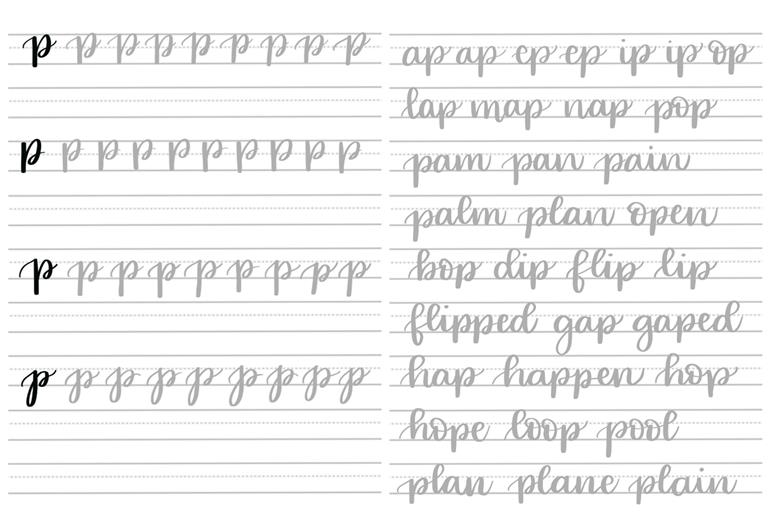 p p p p p p p p p
p p p p p p p p p p
p p p p p p p p p
p p p p p p p p p
ap ap ep ep ip ip op
lap map nap pop
pam pan pain
palm plan open
bop dip flip lip
flipped gap gaped
hap happen hop
hope loop pool
plan plane plain